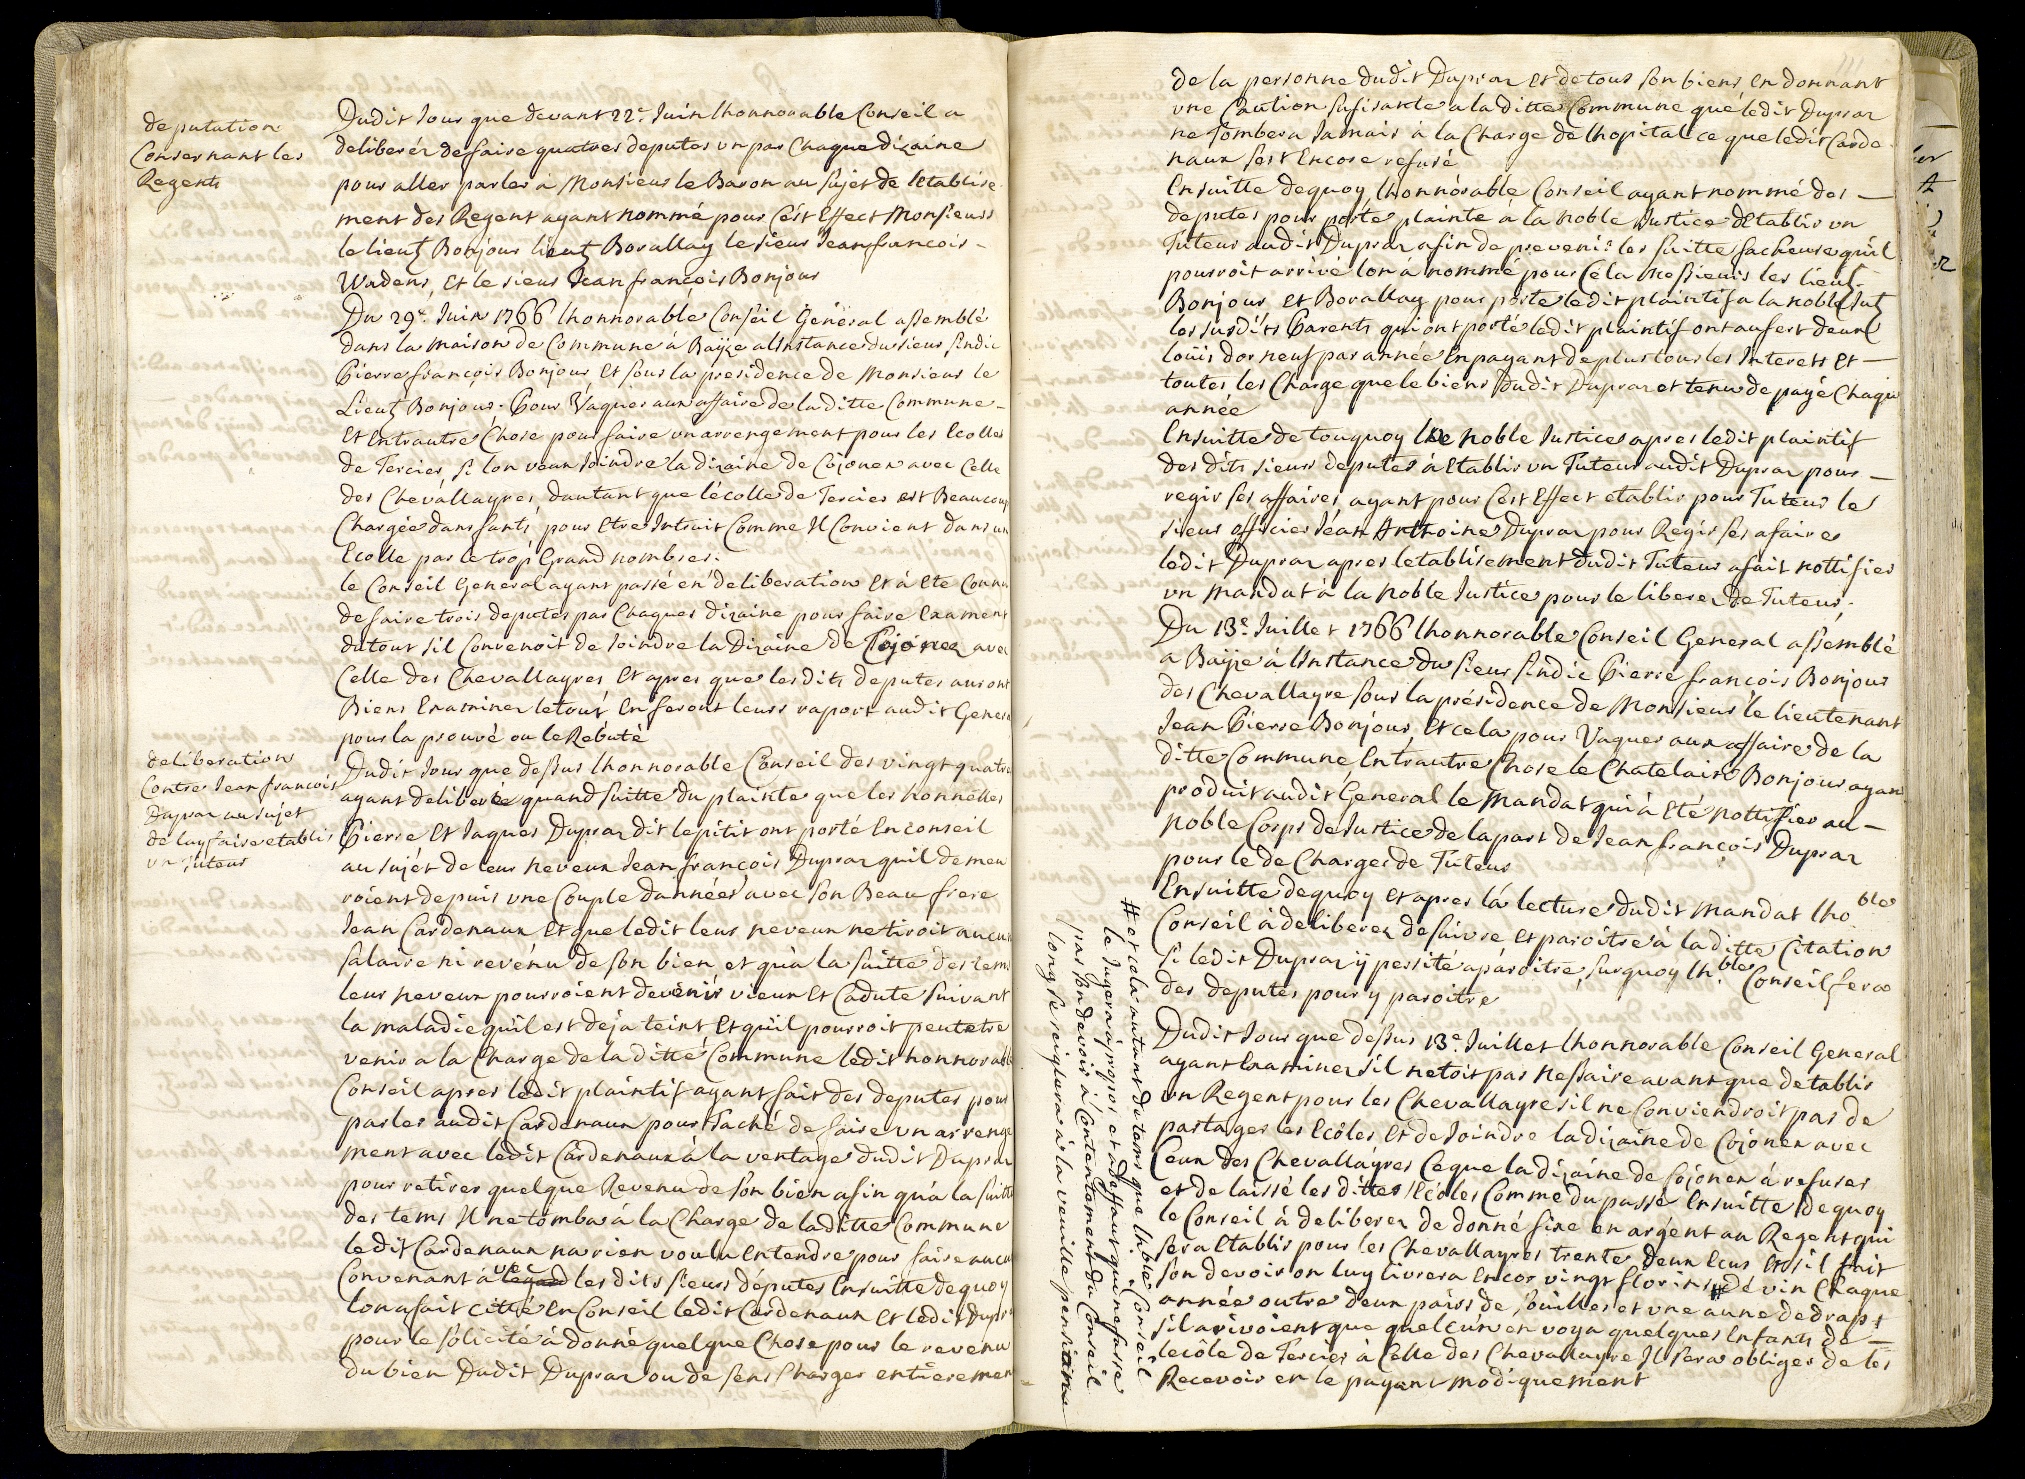 deputation
Consernant les
Regents
Dudit Jour que devant 22e. Juin lhonnorable Conseil a
deliberéz de faire quatres deputes un par Chaque dizaine
pour aller parler à Monsieur le Baron au sujet de letablise
ment des Regent ayant nommé pour Cést Effect Monsieurs
le lieut Bonjour lieut Bovallay le sieur Jean francois -
Wadens, et le sieur Jean françois Bonjour
Du 29e. Juin 1766 lhonnorable Conseil General assemblé
dans la maison de Commune à Bayze alinstance du sieur sindic
Pierre françois Bonjour et sous la presidence de Monsieur le
Lieut Bonjour. Pour Vaquer aux affaire de la ditte Commune -
Et Entrautre Chose pour faire un arrengement pour les Ecolles
de Tercier si lon veux Joindre la dizaine de Cojonex avec Celle
des Chevallayres, dautant que lécolle de Tercier est Beaucoup
Chargée danssants, pour etre Intruit Comme Il Convient dans un
Ecolle par le trop Grand nombres.
le Conseil General ayant passé en deliberation Et à Ete Connu
de faire trois deputes par Chaques dizaine pour faire Examens
du tout sil Convenoit de Joindre la Dizaine de Cojonex avec
Celle des Chevallayres Et apres que les dits deputes auront
Biens Examiner le tout En feront leurs raport audit General
pour la prouvé ou le Rebuté
deliberation
Contre Jean francois
Dupraz au sujet
de luy faire etablir
un Tuteur
Dudit Jour que dessus lhonnorable Conseil des vingt quatre
ayant deliberée quand suitte du plainte que les honnêttes
Pierre Et Jaques Dupraz dit le pitit ont porté En conseil
au sujét de leur neveux Jean françois Dupraz quil demeu
roient depuis une Couple dannées avec son Beau frere
Jean Cardenaux et que ledit leur neveux ne tiroit aucun
salaire ni revénu de son bien, et qu'a la suitte des tems
leur neveux pourroient devénir vieux Et Cadute suivant
la maladie quil est deja teint Et quil pourroit peutetre
venir a la Charge de la ditte Commune ledit honnorable
Conseil apres ledit plaintif ayant fait des deputes pour
parler audit Cardenaux pour Taché de faire un arrenge
ment avec ledit Cardenaux à la ventage dudit Dupraz
pour retirer quelque Revenu de son bien afin qu'a la suitte
des tems Il ne tomba à la Charge de laditte Commune
ledit Cardenaux na rien voulu Entendre pour faire aucun
Convenant avec les dits sieurs députes Ensuitte dequoy
lon a fait Citté En Conseil ledit Cardenaux Et ledit Dupraz
pour le sólicité à donné quelque Chose pour le revenu
du bien Dudit Dupraz ou de sens Charger entiérement
de la personne dudit Dupraz et de tous son biens En donnant
une Caution sufisante a la ditte Commune que ledit Dupraz
ne Tombera Jamais à la Charge de lhopital ce que ledit Carde
naux sest Encore refusé
Ensuitte dequoy lhonnórable Conseil ayant nommé des -
deputes pour porté plainte à la noble Justice dEtablir un
Tuteur audit Dupraz afin de prevenir les suitte facheuse quil
pourroit arrivé lon à nommé pour Céla Messieurs les lieut
Bonjour et Bovallay pour porte ledit plaintif a la noble Jut
les susdits Parents qui ont porté ledit plaintif ont aufert deux
louis dor neuf par année En payant de plus tous les Interets Et -
toutes les Charge que le biens dudit Dupraz et tenu de payé Chaque
année
Ensuitte de touquoy le noble Justice apres ledit plaintif
des dits sieurs deputes à Etablir un Tuteur audit Dupraz pour -
regir ses affaires, ayant pour Cest Effect etablir pour Tuteur le
sieur officier Jéan Anthoine Dupraz pour Regir ses afaires
ledit Dupraz apres letablisement dudit Tuteur a fait nottifier
un mandat à la noble Justice pour le liberer de Tuteur.
Du 13e. Juillet 1766 lhonnorable Conseil General assemblé
a Bayze à linstance du sieur sindic Pierre francois Bonjour
des Chevallayre sous la présidence de Monsieur le lieutenant
Jean Pierre Bonjour, Et cela pour Vaquer aux affaire de la
ditte Commune, Entrautre Chose le Chatelain Bonjour ayan
produit audit General le mandat qui à Eté nottifier au -
noble Corps de Justice de la part de Jean françois Dupraz
pour le de Charger de Tuteur
Ensuitte dequoy Et apres lá lecture dudit mandat lhoble
Conseil à deliberez de suivre, Et paroitre à la ditte Citation
si ledit Dupraz ÿ persité aparoitre, surquoy lhble Conseil fera
des deputes pour y paroitre
Dudit Jour que dessus 13e. Juillet lhonnorable Conseil General
ayant Examiner sil netoit pas nessaire avant que detablir
un Regent pour les Chevallayre sil ne Conviendroit pas de
partager les Ecôles Et de Joindre la dizaine de Cojonex avec
Ceux des Chevallayres Ce que la dizaine de Cojonex á refuser
et de laissé les dittes Ecóles Comme du passé Ensuitte dequoy
le Conseil à deliberer de donné fixe en argent au Regent qui
sera Etablir pour les Chevallayres trente deux Ecus Et sil fait
son devoir on luy livrera Encor vingt florins # dé vin Chaque
année outre deux pairs de souillers et une aune de draps
sil arivoient que quelcun en voya quelques Enfants de -
lecôle de Tercier à Celle des Chevallayre Il sera obliger de les
Recevoir en le payant modiquement
# et cela autant du tems que lhble Conseil
le Jugera à propos et a deffaut qui ne fasse
pas son devoir à Contentement du Conseil
long se reiglera à la veuille pensionne